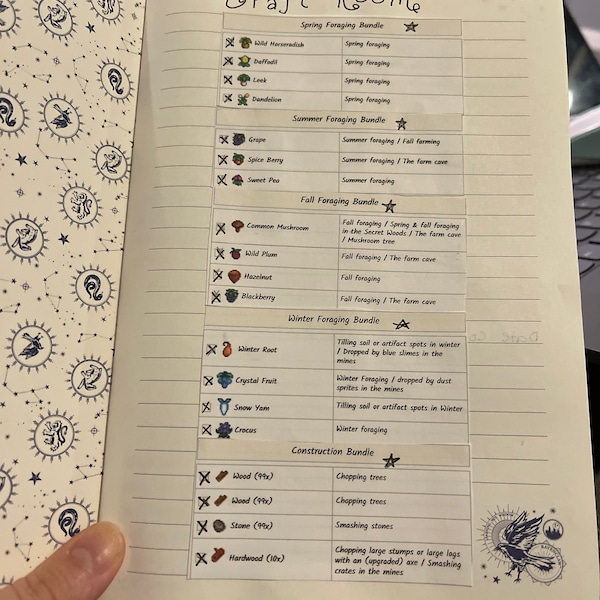 Craft Room
Spring Foraging Bundle
Wild Horseradish Spring foraging
Daffodil Spring foraging
Leek Spring foraging
Dandelion Spring foraging
Summer Foraging Bundle
Grape Summer foraging / Fall farming
Spice Berry Summer foraging / The farm cave
Sweet Pea Summer foraging
Fall Foraging Bundle
Common Mushroom Fall foraging / Spring & fall foraging
in the Secret Woods / The farm cave
/ Mushroom tree
Wild Plum Fall foraging / The farm cave
Hazelnut Fall foraging
Blackberry Fall foraging / The farm cave
Winter Foraging Bundle
Winter Root Tilling soil or artifact spots in winter
/ Dropped by blue slimes in the
mines
Crystal Fruit Winter Foraging / dropped by dust
sprites in the mines
Snow Yam Tilling soil or artifact spots in Winter
Crocus Winter foraging
Construction Bundle
Wood (99x) Chopping trees
Wood (99x) Chopping trees
Stone (99x) Smashing stones
Hardwood (10x) Chopping large stumps or large logs
with an (upgraded) axe / Smashing
crates in the mines